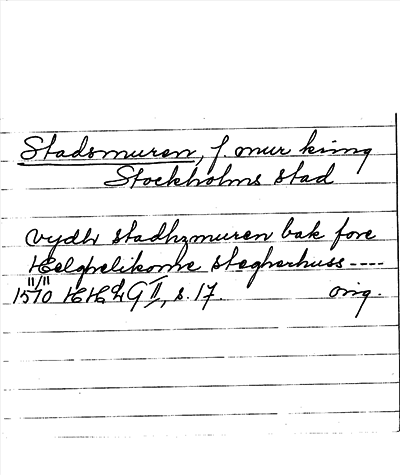 Stadsmuren, f. mur kring
Stockholms stad
vydh stadhzmuren bak före
stegherhuss ----
11/11
1510 HHLG II, s. 17. orig.